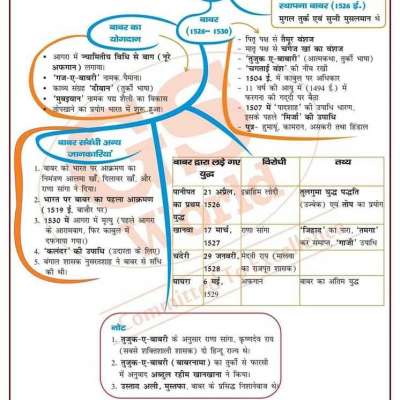 स्थापना बाबर (1526 ई.)
मुगल तुर्क एवं सुन्नी मुसलमान थे
बाबर का
योगदान
बाबर
(1526– 1530)
आगरा में ज्यामितीय विधि से बाग (नूरे
अफगान) लगाया।
'गज-ए-बाबरी' नामक पैमाना
काव्य संग्रह 'दीवान' (तुर्की भाषा)
'मुबइयान' नामक पद्य शैली का विकास
तोपखाने का प्रयोग भारत में शुरू हुआ।
पितृ पक्ष से तैमूर वंशज
मातृ पक्ष से चंगेज खां का वंशज
'तुजुक-ए-बाबरी' (आत्मकथा, तुर्की भाषा)
'चगताई वंश' की नींव रखी
1504 ई. में काबुल पर अधिकार
11 वर्ष की आयु में (1494 ई.) में
फरगना की गद्दी पर बैठा
1507 में 'पादशाह' की उपाधि धारण,
इसके पहले 'मिर्जा' की उपाधि
पुत्र- हुमायूं, कामरान, असकरी तथा हिंदाल
बाबर संबंधी अन्य
जानकारियां
1. बाबर को भारत पर आक्रमण का
निमंत्रण आलम खाँ, दिलावर खाँ. और
राणा सांगा ने दिया।
2. भारत पर बाबर का पहला आक्रमण
(1519 ई. बाजौर पर)
3. 1530 में आगरा में मृत्यु (पहले आगरा
के आरामबाग, फिर काबुल में
दफनाया गया।)
4. 'कलंदर' की उपाधि (उदारता के लिए)
5. बंगाल शासक नुसरतशाह ने बाबर से संधि
की थी।
बाबर द्वारा लड़े गए युद्ध विरोधी तथ्य
पानीपत का प्रथम 21 अप्रैल, 1526 इब्राहिम लोदी तुलगुमा युद्ध पद्धति (उज्बेक) एवं तोप का प्रयोग
खानवा 17 मार्च, 1527 राणा सांगा 'जिहाद' का नारा, 'तमगा' कर समाप्त, 'गाजी' उपाधि
चंदेरी 29 जनवरी, 1528 मेदनी राय (मालवा का राजपूत शासक)
घाघरा 6 मई, 1529 अफगान बाबर का अंतिम युद्ध
नोट
1. तुजुक-ए-बाबरी के अनुसार राणा सांगा, कृष्णदेव राय
(सबसे शक्तिशाली शासक) दो हिन्दू राज्य थे।
2. तुजुक-ए-बाबरी (बाबरनामा) का तुर्की से फारसी
में अनुवाद अब्दुल रहीम खानखाना ने किया।
3. उस्ताद अली, मुस्तफा, बाबर के प्रसिद्ध निशानेबाज थे।